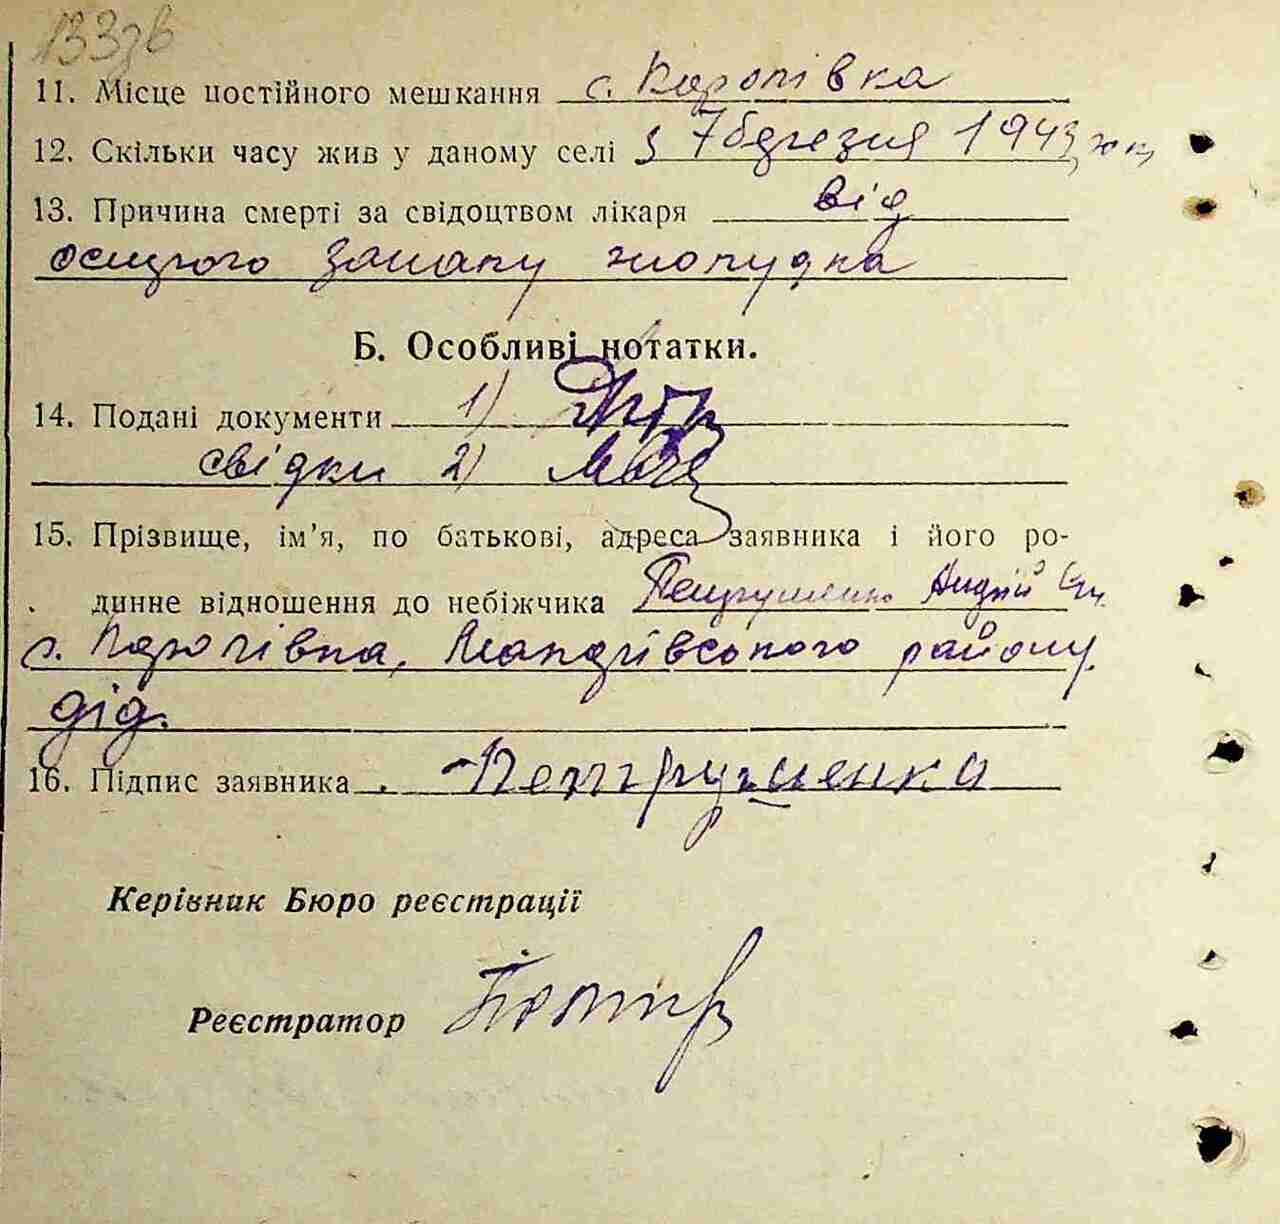 133зв
11. Місце постійного мешкання с. Каропівка
12. Скільки часу жив у даному селі з 7 березня 1943
13. Причина смерті за свідоцтвом лікаря від
острого запалу жолудка
Б. Особливі нотатки.
14. Подані документи 1)
свідки 2)
15. Прізвище, ім'я, по батькові, адреса заявника і його ро-
динне відношення до небіжчика Петрушенко Андрій
с. району
дід.
16. Підпис заявника Петрушенка
Керівник Бюро реєстрації
Реєстратор